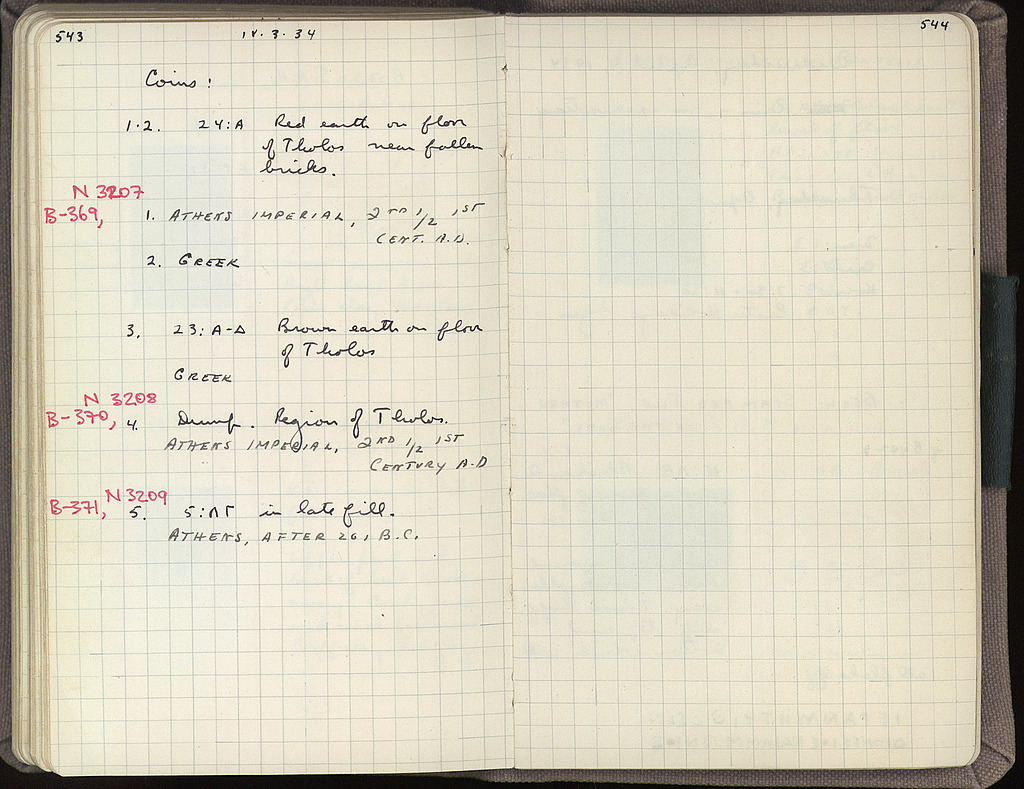 543
IV.3.34
544
Coins:
1.2. 24:A Red earth on floor
of Tholos near fallen
bricks.
N 3207
B-369, 1. ATHENS IMPERIAL, 2ND 1/2 1ST
CENT. A.D.
2. GREEK
3. 23: A-Δ Brown earth on floor
of Tholos
GREEK
N 3208
B-370, 4. Dump. Region of Tholos.
ATHENS IMPERIAL, 2ND 1/2 1ST
CENTURY A.D
N 3209
B-371, 5. 5:ΛΓ in late fill.
ATHENS, AFTER 261 B.C.